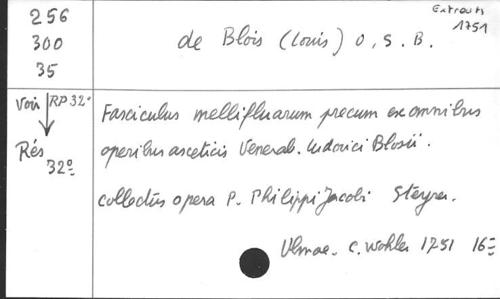 256
300
35
de Blois (Louis) O. S. B.
Extraits
1751
Voir RP 32°
Rés
32º
Fasciculus mellifluarum precum ex omnibus
operibus asceticis Venerab. Ludovici Blosii.
collectus opera P. Philippi Jacobi Steyrer.
Ulmae. C. Wohler 1751 16º